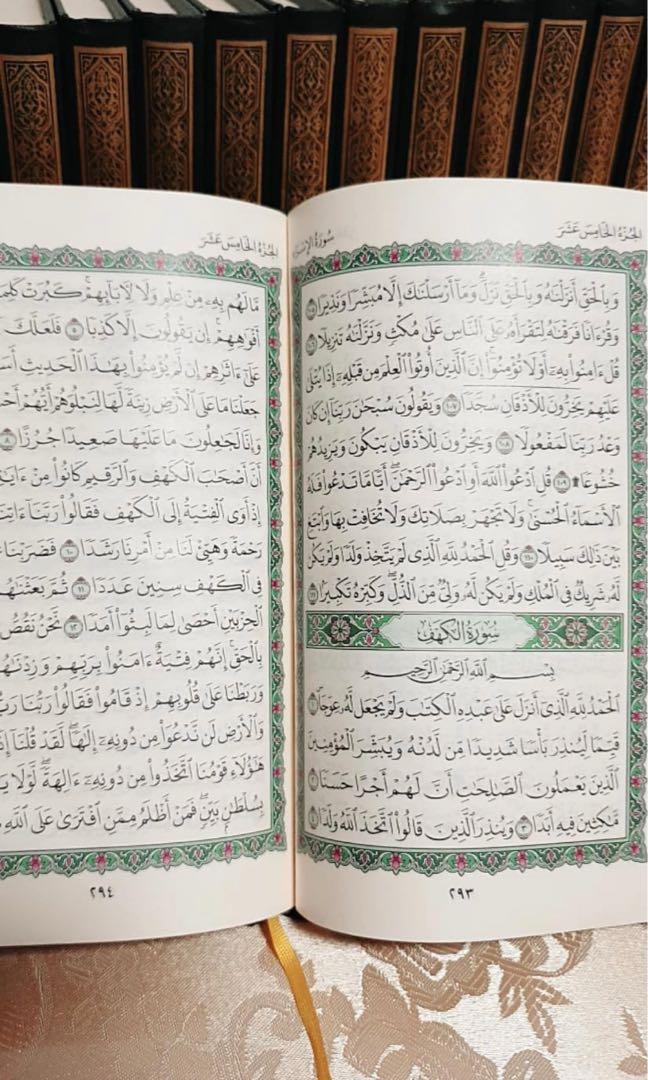 الجزء الخامس عشر
سورة الإسراء
وَبِالْحَقِّ أَنزَلْنَٰهُ وَبِالْحَقِّ نَزَلَ ۗ وَمَآ أَرْسَلْنَٰكَ إِلَّا مُبَشِّرًا وَنَذِيرًا ١٠٥
وَقُرْءَانًا فَرَقْنَٰهُ لِتَقْرَأَهُۥ عَلَى النَّاسِ عَلَىٰ مُكْثٍ وَنَزَّلْنَٰهُ تَنزِيلًا ١٠٦
قُلْ ءَامِنُوا۟ بِهِۦٓ أَوْ لَا تُؤْمِنُوٓا۟ ۚ إِنَّ الَّذِينَ أُوتُوا۟ الْعِلْمَ مِن قَبْلِهِۦٓ إِذَا يُتْلَىٰ
عَلَيْهِمْ يَخِرُّونَ لِلْأَذْقَانِ سُجَّدًا ١٠٧ وَيَقُولُونَ سُبْحَٰنَ رَبِّنَآ إِن كَانَ
وَعْدُ رَبِّنَا لَمَفْعُولًا ١٠٨ وَيَخِرُّونَ لِلْأَذْقَانِ يَبْكُونَ وَيَزِيدُهُمْ
خُشُوعًا ۩ ١٠٩ قُلِ ادْعُوا۟ اللَّهَ أَوِ ادْعُوا۟ الرَّحْمَٰنَ ۖ أَيًّا مَّا تَدْعُوا۟ فَلَهُ
الْأَسْمَآءُ الْحُسْنَىٰ ۚ وَلَا تَجْهَرْ بِصَلَاتِكَ وَلَا تُخَافِتْ بِهَا وَابْتَغِ
بَيْنَ ذَٰلِكَ سَبِيلًا ١١٠ وَقُلِ الْحَمْدُ لِلَّهِ الَّذِى لَمْ يَتَّخِذْ وَلَدًا وَلَمْ يَكُن
لَّهُۥ شَرِيكٌ فِى الْمُلْكِ وَلَمْ يَكُن لَّهُۥ وَلِىٌّ مِّنَ الذُّلِّ ۖ وَكَبِّرْهُ تَكْبِيرًۢا ١١١
سورة الكهف
بِسْمِ اللَّهِ الرَّحْمَٰنِ الرَّحِيمِ
الْحَمْدُ لِلَّهِ الَّذِىٓ أَنزَلَ عَلَىٰ عَبْدِهِ الْكِتَٰبَ وَلَمْ يَجْعَل لَّهُۥ عِوَجَا ١
قَيِّمًا لِّيُنذِرَ بَأْسًا شَدِيدًا مِّن لَّدُنْهُ وَيُبَشِّرَ الْمُؤْمِنِينَ
الَّذِينَ يَعْمَلُونَ الصَّٰلِحَٰتِ أَنَّ لَهُمْ أَجْرًا حَسَنًا ٢
مَّٰكِثِينَ فِيهِ أَبَدًا ٣ وَيُنذِرَ الَّذِينَ قَالُوا۟ اتَّخَذَ اللَّهُ وَلَدًا ٤
٢٩٣
الجزء الخامس عشر
مَّا لَهُم بِهِۦ مِنْ عِلْمٍ وَلَا لِءَابَآئِهِمْ ۚ كَبُرَتْ
أَفْوَٰهِهِمْ ۚ إِن يَقُولُونَ إِلَّا كَذِبًا ٥ فَلَعَلَّكَ
عَلَىٰٓ ءَاثَٰرِهِمْ إِن لَّمْ يُؤْمِنُوا۟ بِهَٰذَا الْحَدِيثِ
جَعَلْنَا مَا عَلَى الْأَرْضِ زِينَةً لَّهَا لِنَبْلُوَهُمْ أَيُّهُمْ
وَإِنَّا لَجَٰعِلُونَ مَا عَلَيْهَا صَعِيدًا جُرُزًا ٨
أَنَّ أَصْحَٰبَ الْكَهْفِ وَالرَّقِيمِ كَانُوا۟ مِنْ
إِذْ أَوَى الْفِتْيَةُ إِلَى الْكَهْفِ فَقَالُوا۟ رَبَّنَآ
رَحْمَةً وَهَيِّئْ لَنَا مِنْ أَمْرِنَا رَشَدًا ١٠ فَضَرَبْنَا
فِى الْكَهْفِ سِنِينَ عَدَدًا ١١ ثُمَّ بَعَثْنَٰهُمْ
الْحِزْبَيْنِ أَحْصَىٰ لِمَا لَبِثُوٓا۟ أَمَدًا ١٢ نَّحْنُ نَقُصُّ
بِالْحَقِّ ۚ إِنَّهُمْ فِتْيَةٌ ءَامَنُوا۟ بِرَبِّهِمْ وَزِدْنَٰهُمْ
وَرَبَطْنَا عَلَىٰ قُلُوبِهِمْ إِذْ قَامُوا۟ فَقَالُوا۟ رَبُّنَا
وَالْأَرْضِ لَن نَّدْعُوَا۟ مِن دُونِهِۦٓ إِلَٰهًا ۖ لَّقَدْ قُلْنَآ
هَٰٓؤُلَآءِ قَوْمُنَا اتَّخَذُوا۟ مِن دُونِهِۦٓ ءَالِهَةً ۖ لَّوْلَا
بِسُلْطَٰنٍۭ بَيِّنٍ ۖ فَمَنْ أَظْلَمُ مِمَّنِ افْتَرَىٰ عَلَى اللَّهِ
٢٩٤